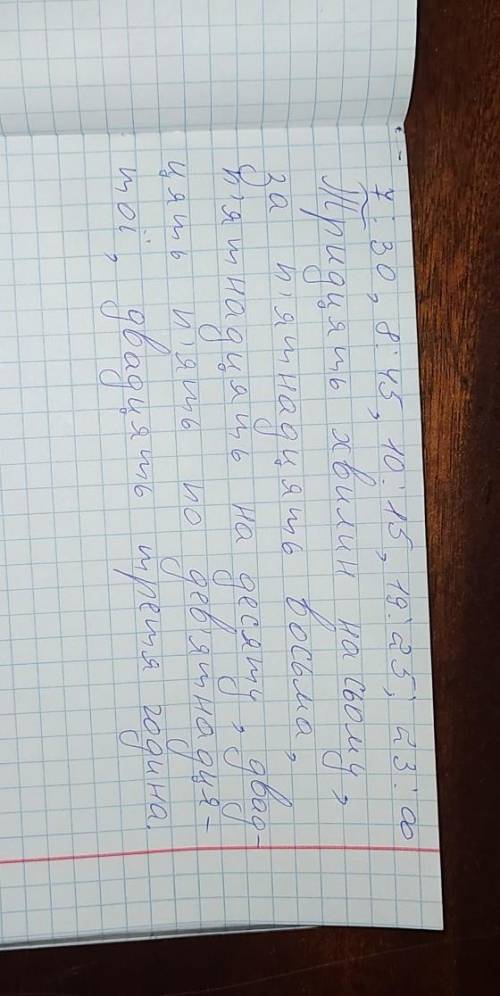 7:30, 8:45, 10:15, 19:25, 23:00
Тридцять хвилин на сьому,
за п'ятнадцять восьма,
п'ятнадцять на десяту, двад-
цять п'ять по дев'ятнадця-
тої, двадцять третя година.